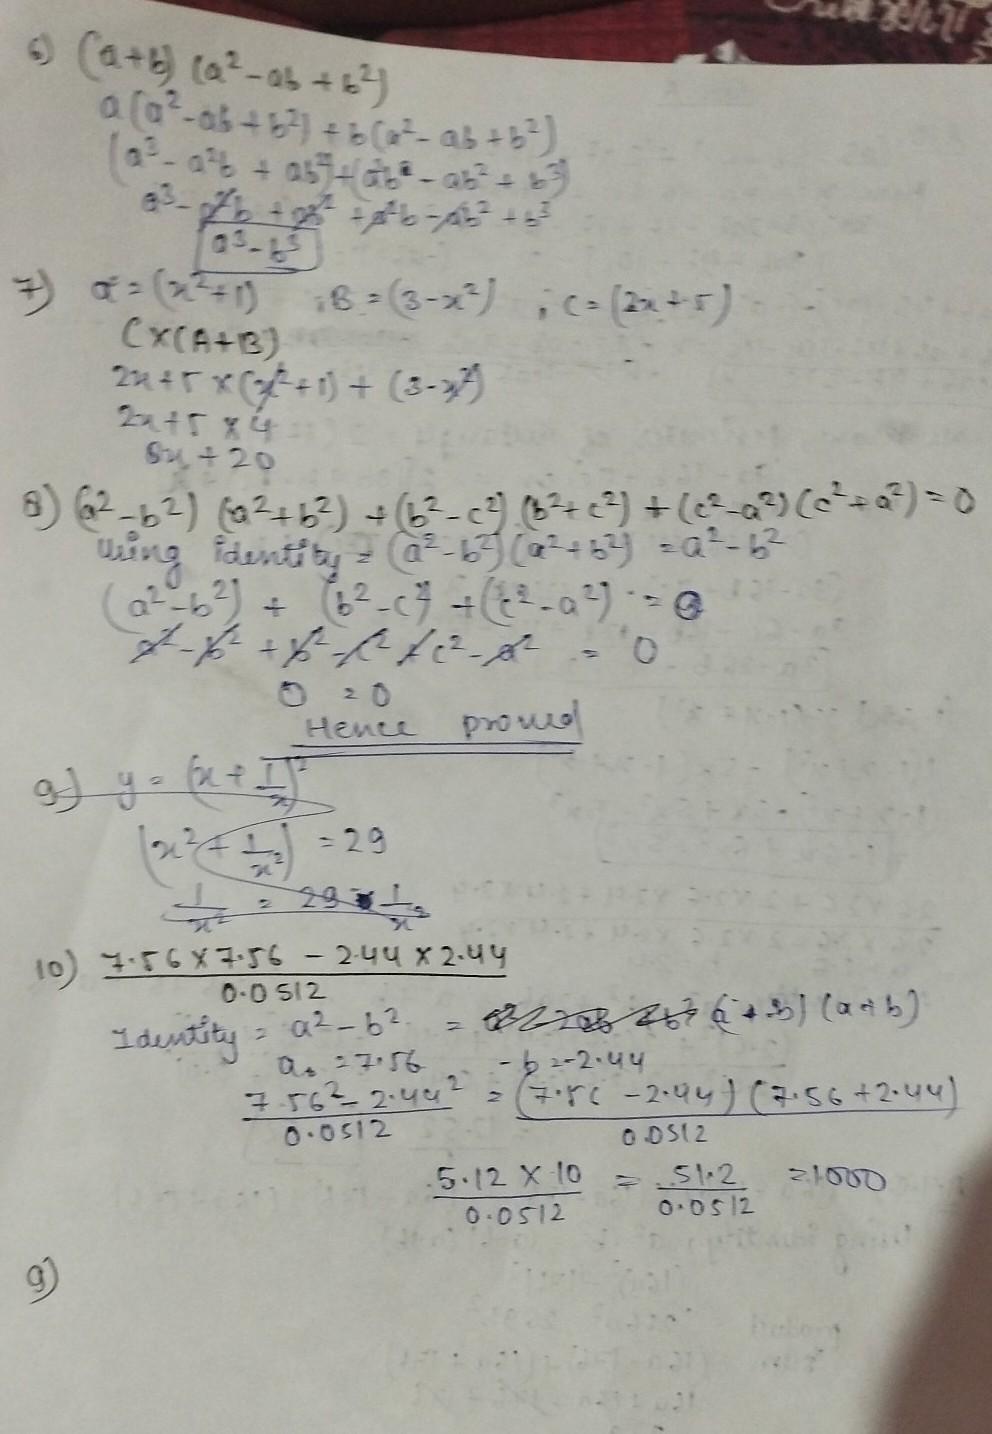 6) (a+b) (a²-ab+b²)
a(a²-ab+b²)+b(a²-ab+b²)
(a³-a²b+ab²)+(a²b-ab²+b³)
a³-a²b+ab²+a²b-ab²+b³
a³-b³
7) a=(x²+1) ; B=(3-x²) ; C=(2x+5)
C×(A+B)
2x+5×(x²+1)+(3-x²)
2x+5×4
8x+20
8) (a²-b²) (a²+b²)+(b²-c²) (b²+c²)+(c²-a²)(c²+a²)=0
Using identity=(a²-b²)(a²+b²)=a²-b²
(a²-b²)+(b²-c²)+(c²-a²)=0
a²-b²+b²-c²+c²-a²=0
0=0
Hence proved
9) y=(x+1/x)²
(x²+1/x²)=29
1/x²=29 1/x²
10) 7.56×7.56-2.44×2.44
0.0512
Identity=a²-b²= (a+b)(a+b)
a=7.56 -b=-2.44
7.56²-2.44²/0.0512=(7.56-2.44)(7.56+2.44)/0.0512
5.12×10/0.0512=51.2/0.0512=1000
9)